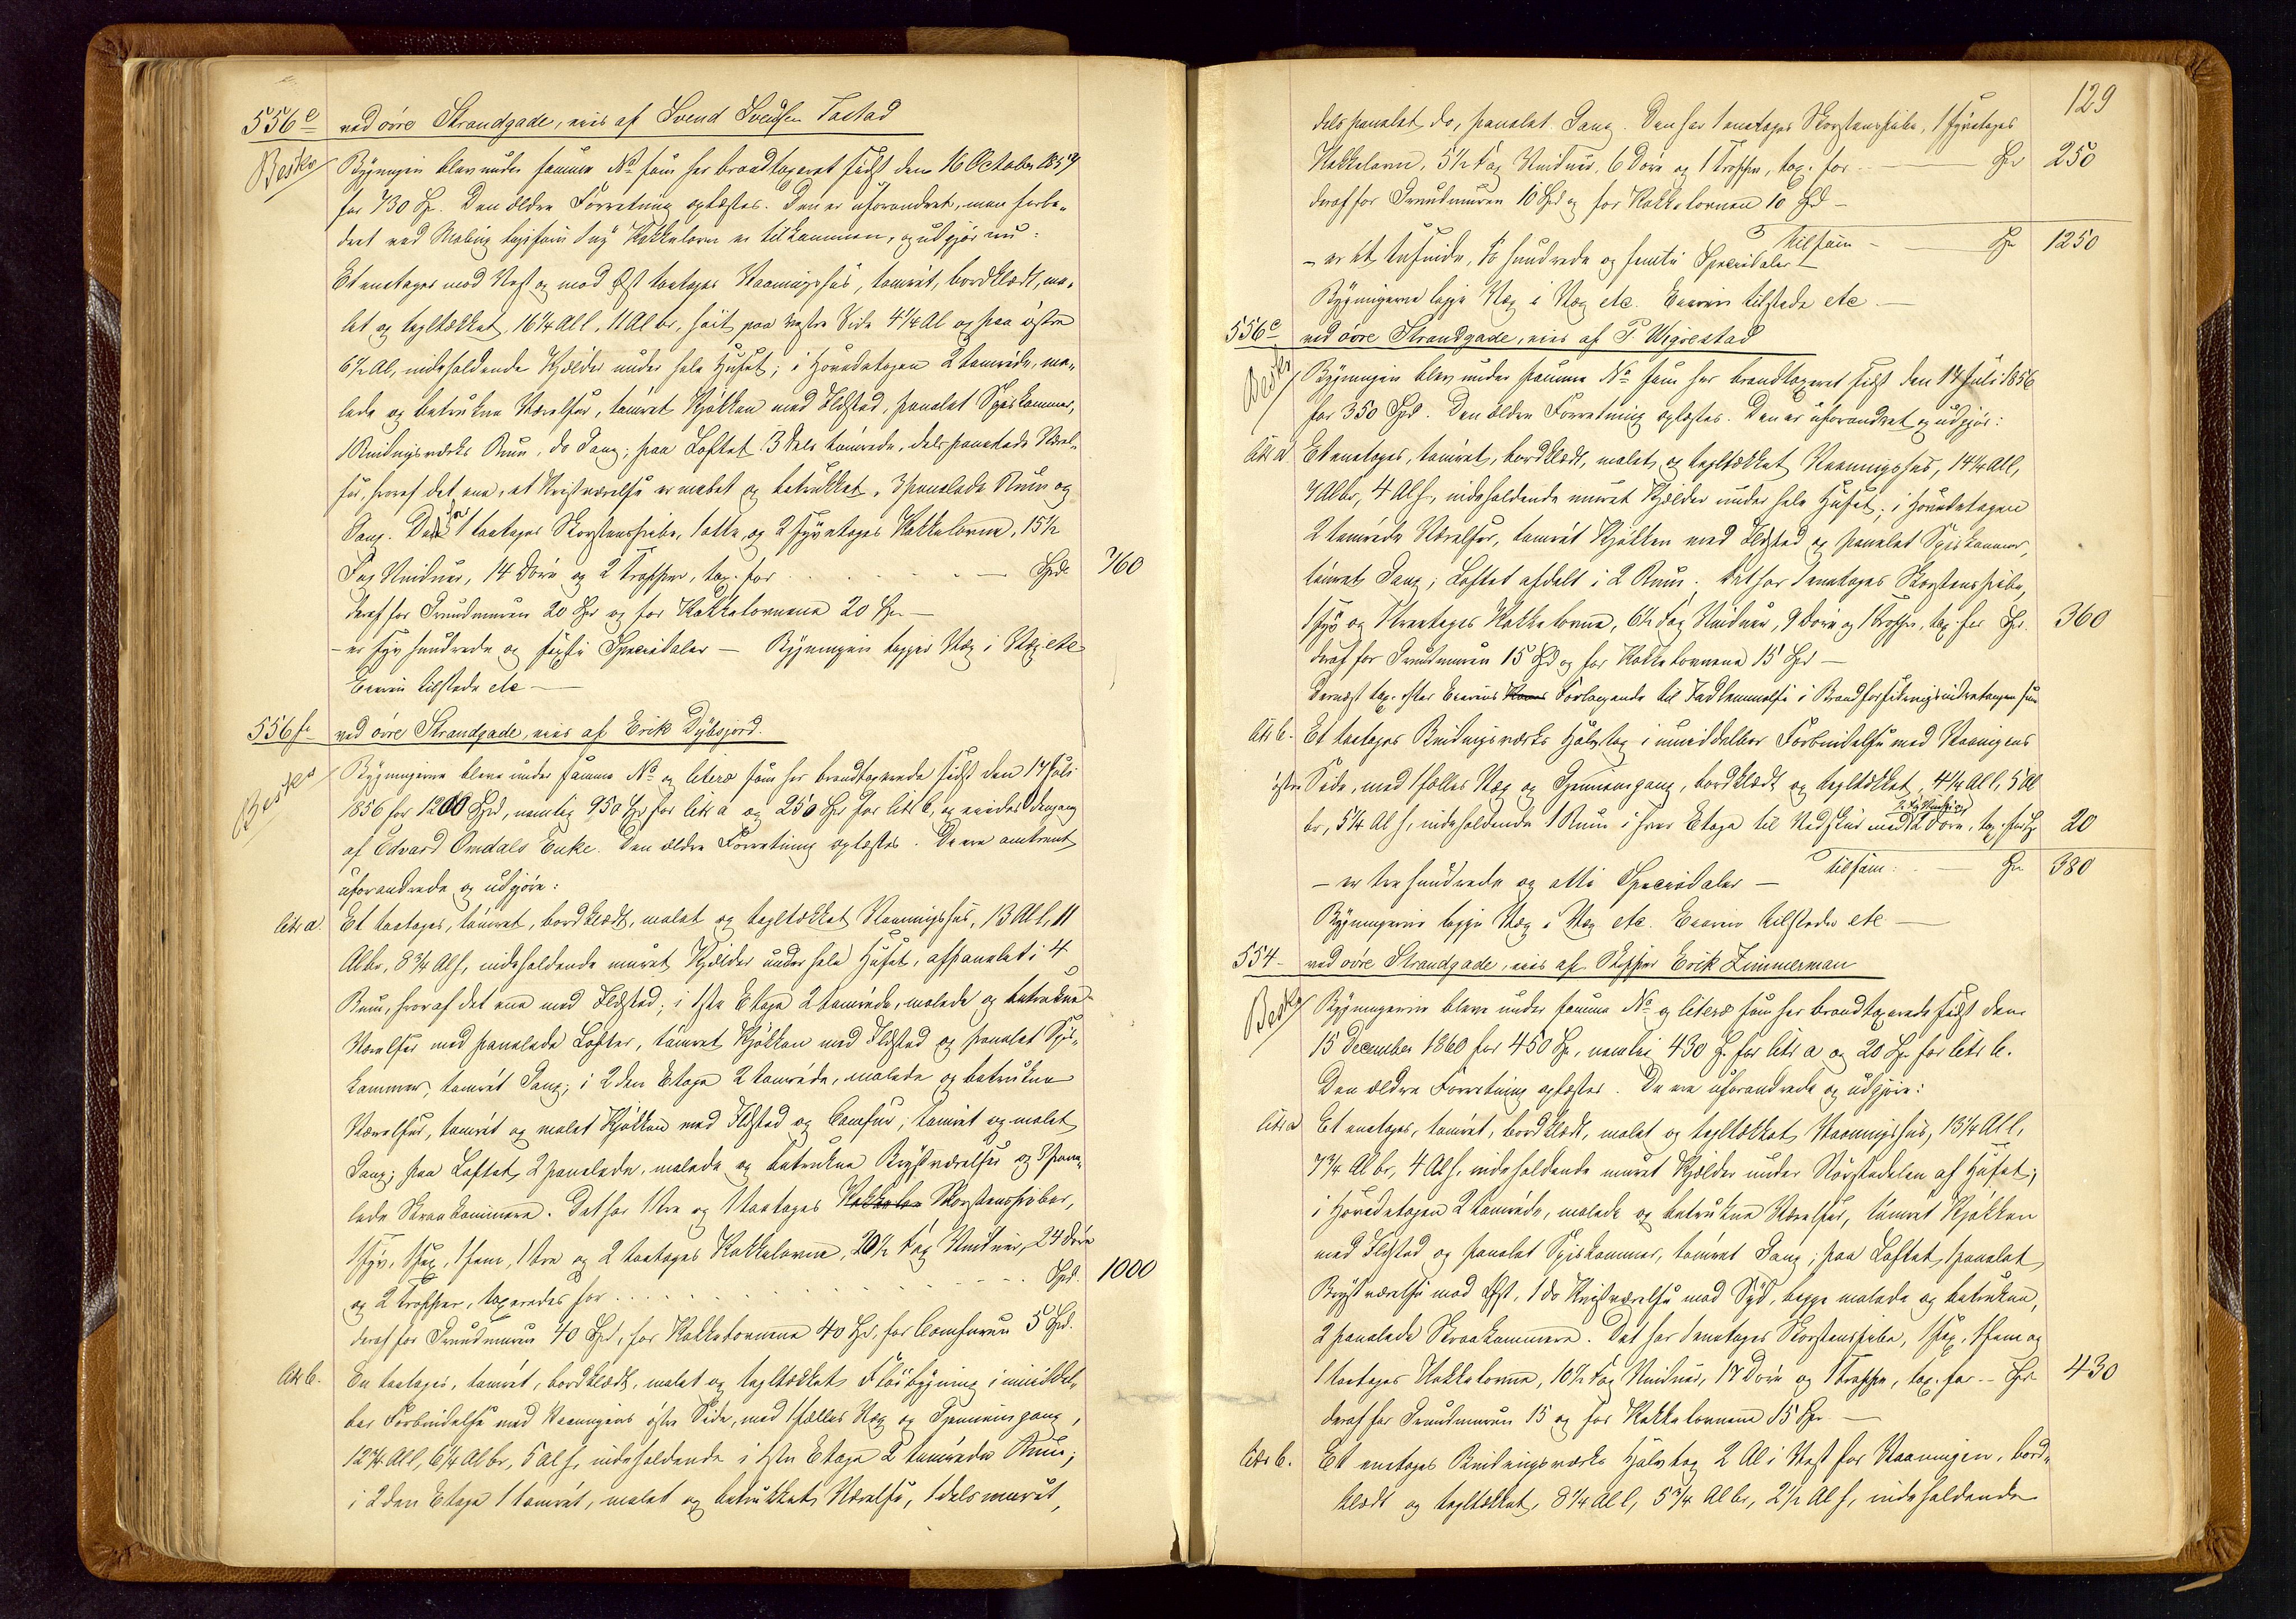 556e ved øvre Strandgade, eies af Svend Svendsen Tastad
Beskr Bygningen blev under samme No som her brandtaxeret sidst den 16 October 1857
for 730 Spd. Den ældre Forretning oplæstes. Den er uforandret, men forbe-
dret ved Maling ligesom Kakkelovn er tilkommen, og udgjør nu:
Et eneetages mod Vest og mod Øst toetages Vaaningshus, tømret, bordklædt, ma-
let og tegltækket, 16 1/4 Al l, 11 Al br, høit paa vestre Side 4 1/4 Al og paa østre
6 1/2 Al, indeholdende Kjælder under hele Huset; i Hovedetagen 2 tømrede, ma-
lede og betrukne Værelser, tømret Kjøkken med Ildsted, panelet Spiskammer,
1 Bindingsværks Rum, do Gang; paa Loftet 3 dels tømrede, dels panelede Værel-
ser, hvoraf det ene, et Kvistværelse er malet og betrukket, 3 panelede Rum og
Gang. Det har 1 toetages Skorstenspibe, 1 otte og 2 syvetages Kakkelovne, 15 1/2
Fag Vinduer, 14 Døre og 2 Trapper, tax. for Spd. 760
deraf for Grundmuren 20 Spd og for Kakkelovnene 20 Spd —
– er syv hundrede og sexti Speciedaler — Bygningen ligger Væg i Væg etc
Eieren tilstede etc —
556f ved øvre Strandgade, eies af Erik Dybsjord.
Beskr Bygningerne bleve under samme No og litera som her brandtaxerede sidst den 14 Juli
1856 for 1200 Spd, nemlig 950 Spd for litr a og 250 Spd for litr b, og eiedes dengang
af Edvard Omdals Enke. Den ældre Forretning oplæstes. De ere omtrent
uforandrede og udgjøre:
litr a. Et toetages, tømret, bordklædt, malet og tegltækket Vaaningshus, 13 Al l, 11
Al br, 8 3/4 Al h, indeholdende muret Kjælder under hele Huset, afpanelet i 4
Rum, hvoraf det ene med Ildsted; i 1ste Etage 2 tømrede, malede og betrukne
Værelser med panelede Lofter, tømret Kjøkken med Ildsted og panelet Spis-
kammer, tømret Gang; i 2den Etage 2 tømrede, malede og betrukne
Værelser, tømret og malet Kjøkken med Ildsted og Comfur, tømret og malet
Gang; paa Loftet, 2 panelede, malede og betrukne Kvistværelser og 3 pane-
lede Skraakammere. Det har 1 tre og 1 toetages Skorstenspiber,
1 syv, 1 sex, 1 fem, 1 tre og 2 toetages Kakkelovne, 20 1/2 Fag Vinduer, 24 Døre
og 2 Trapper, taxeredes for Spd. 1000
deraf for Grundmuren 40 Spd, for Kakkelovnene 40 Spd, for Comfuren 5 Spd.
litr b. En toetages, tømret, bordklædt, malet og tegltækket Fløibygning i umiddel-
bar Forbindelse med Vaaningens østre Side, med fælles Væg og Gjennemgang,
12 3/4 Al l, 6 1/4 Al br, 5 Al h, indeholdende i 1ste Etage 2 tømrede Rum;
i 2den Etage 1 tømret, malet og betrukket Værelse, 1 dels muret,
129
dels panelet do, panelet Gang. Den har 1 eneetages Skorstenspibe, 1 fyretages
Kakkelovn, 5 1/2 Fag Vinduer, 6 Døre og 1 Trappe, tax. for Spd 250
deraf for Grundmuren 10 Spd og for Kakkelovnen 10 Spd —
Tilsam – Spd 1250
– er et tusinde, to hundrede og femti Speciedaler –
Bygningerne ligge Væg i Væg etc. Eieren tilstede etc —
556c ved øvre Strandgade, eies af P. Wigrestad
Beskr Bygningen blev under samme No som her brandtaxeret sidst den 14 Juli 1856
for 350 Spd. Den ældre Forretning oplæstes. Den er uforandret og udgjør:
litr a Et eneetages, tømret, bordklædt, malet og tegltækket Vaaningshus, 14 1/4 Al l,
7 Al br, 4 Al h, indeholdende muret Kjælder under hele Huset; i Hovedetagen
2 tømrede Værelser, tømret Kjøkken med Ildsted og panelet Spiskammer,
tømret Gang; Loftet afdelt i 2 Rum. Det har 1 eneetages Skorstenspibe,
1 syv og 1 treetages Kakkelovne, 6 1/2 Fag Vinduer, 9 Døre og 1 Trappe, tax. for Spd. 360
deraf for Grundmuren 15 Spd og for Kakkelovnene 15 Spd —
Dernæst tax. efter Eierens Forlangende til Indlemmelse i Brandforsikringsindretningen
litr b. Et toetages Bindingsværks Halvtag i umiddelbar Forbindelse med Vaaningens
østre Side, med fælles Væg og Gjennemgang, bordklædt og tegltækket, 4 1/4 Al l, 5 Al
br, 5 1/4 Al h, indeholdende 1 Rum i hver Etage til Vedskur med 2 Døre, tax. for Spd 20
Tilsam: Spd 380
– er tre hundrede og otti Speciedaler —
Bygningerne ligge Væg i Væg etc. Eieren tilstede etc —
554 ved øvre Strandgade, eies af Skipper Erik Zimmerman
Beskr Bygningerne bleve under samme No og litera som her brandtaxerede sidst den
15 December 1860 for 450 Spd, nemlig 430 Spd for litr a og 20 Spd for litr b.
Den ældre Forretning oplæstes. De ere uforandrede og udgjøre:
litr a Et eneetages, tømret, bordklædt, malet og tegltækket Vaaningshus, 13 1/4 Al l,
7 3/4 Al br, 4 Al h, indeholdende muret Kjælder under Størstedelen af Huset;
i Hovedetagen 2 tømrede, malede og betrukne Værelser, tømret Kjøkken
med Ildsted og panelet Spiskammer, tømret Gang; paa Loftet 1 panelet
Kvistværelse mod Øst, 1 do Kvistværelse mod Syd, begge malede og betrukne,
2 panelede Skraakammere. Det har 1 eneetages Skorstenspibe, 1 sex, 1 fem og
1 toetages Kakkelovne, 10 1/2 Fag Vinduer, 17 Døre og 1 Trappe, tax. for – Spd 430
deraf for Grundmuren 15 og for Kakkelovnene 15 Spd —
litr b. Et eneetages Bindingsværks Halvtag 2 Al i Vest for Vaaningen, bord-
klædt og tegltækket, 8 1/4 Al l, 5 3/4 Al br, 2 1/2 Al h, indeholdende